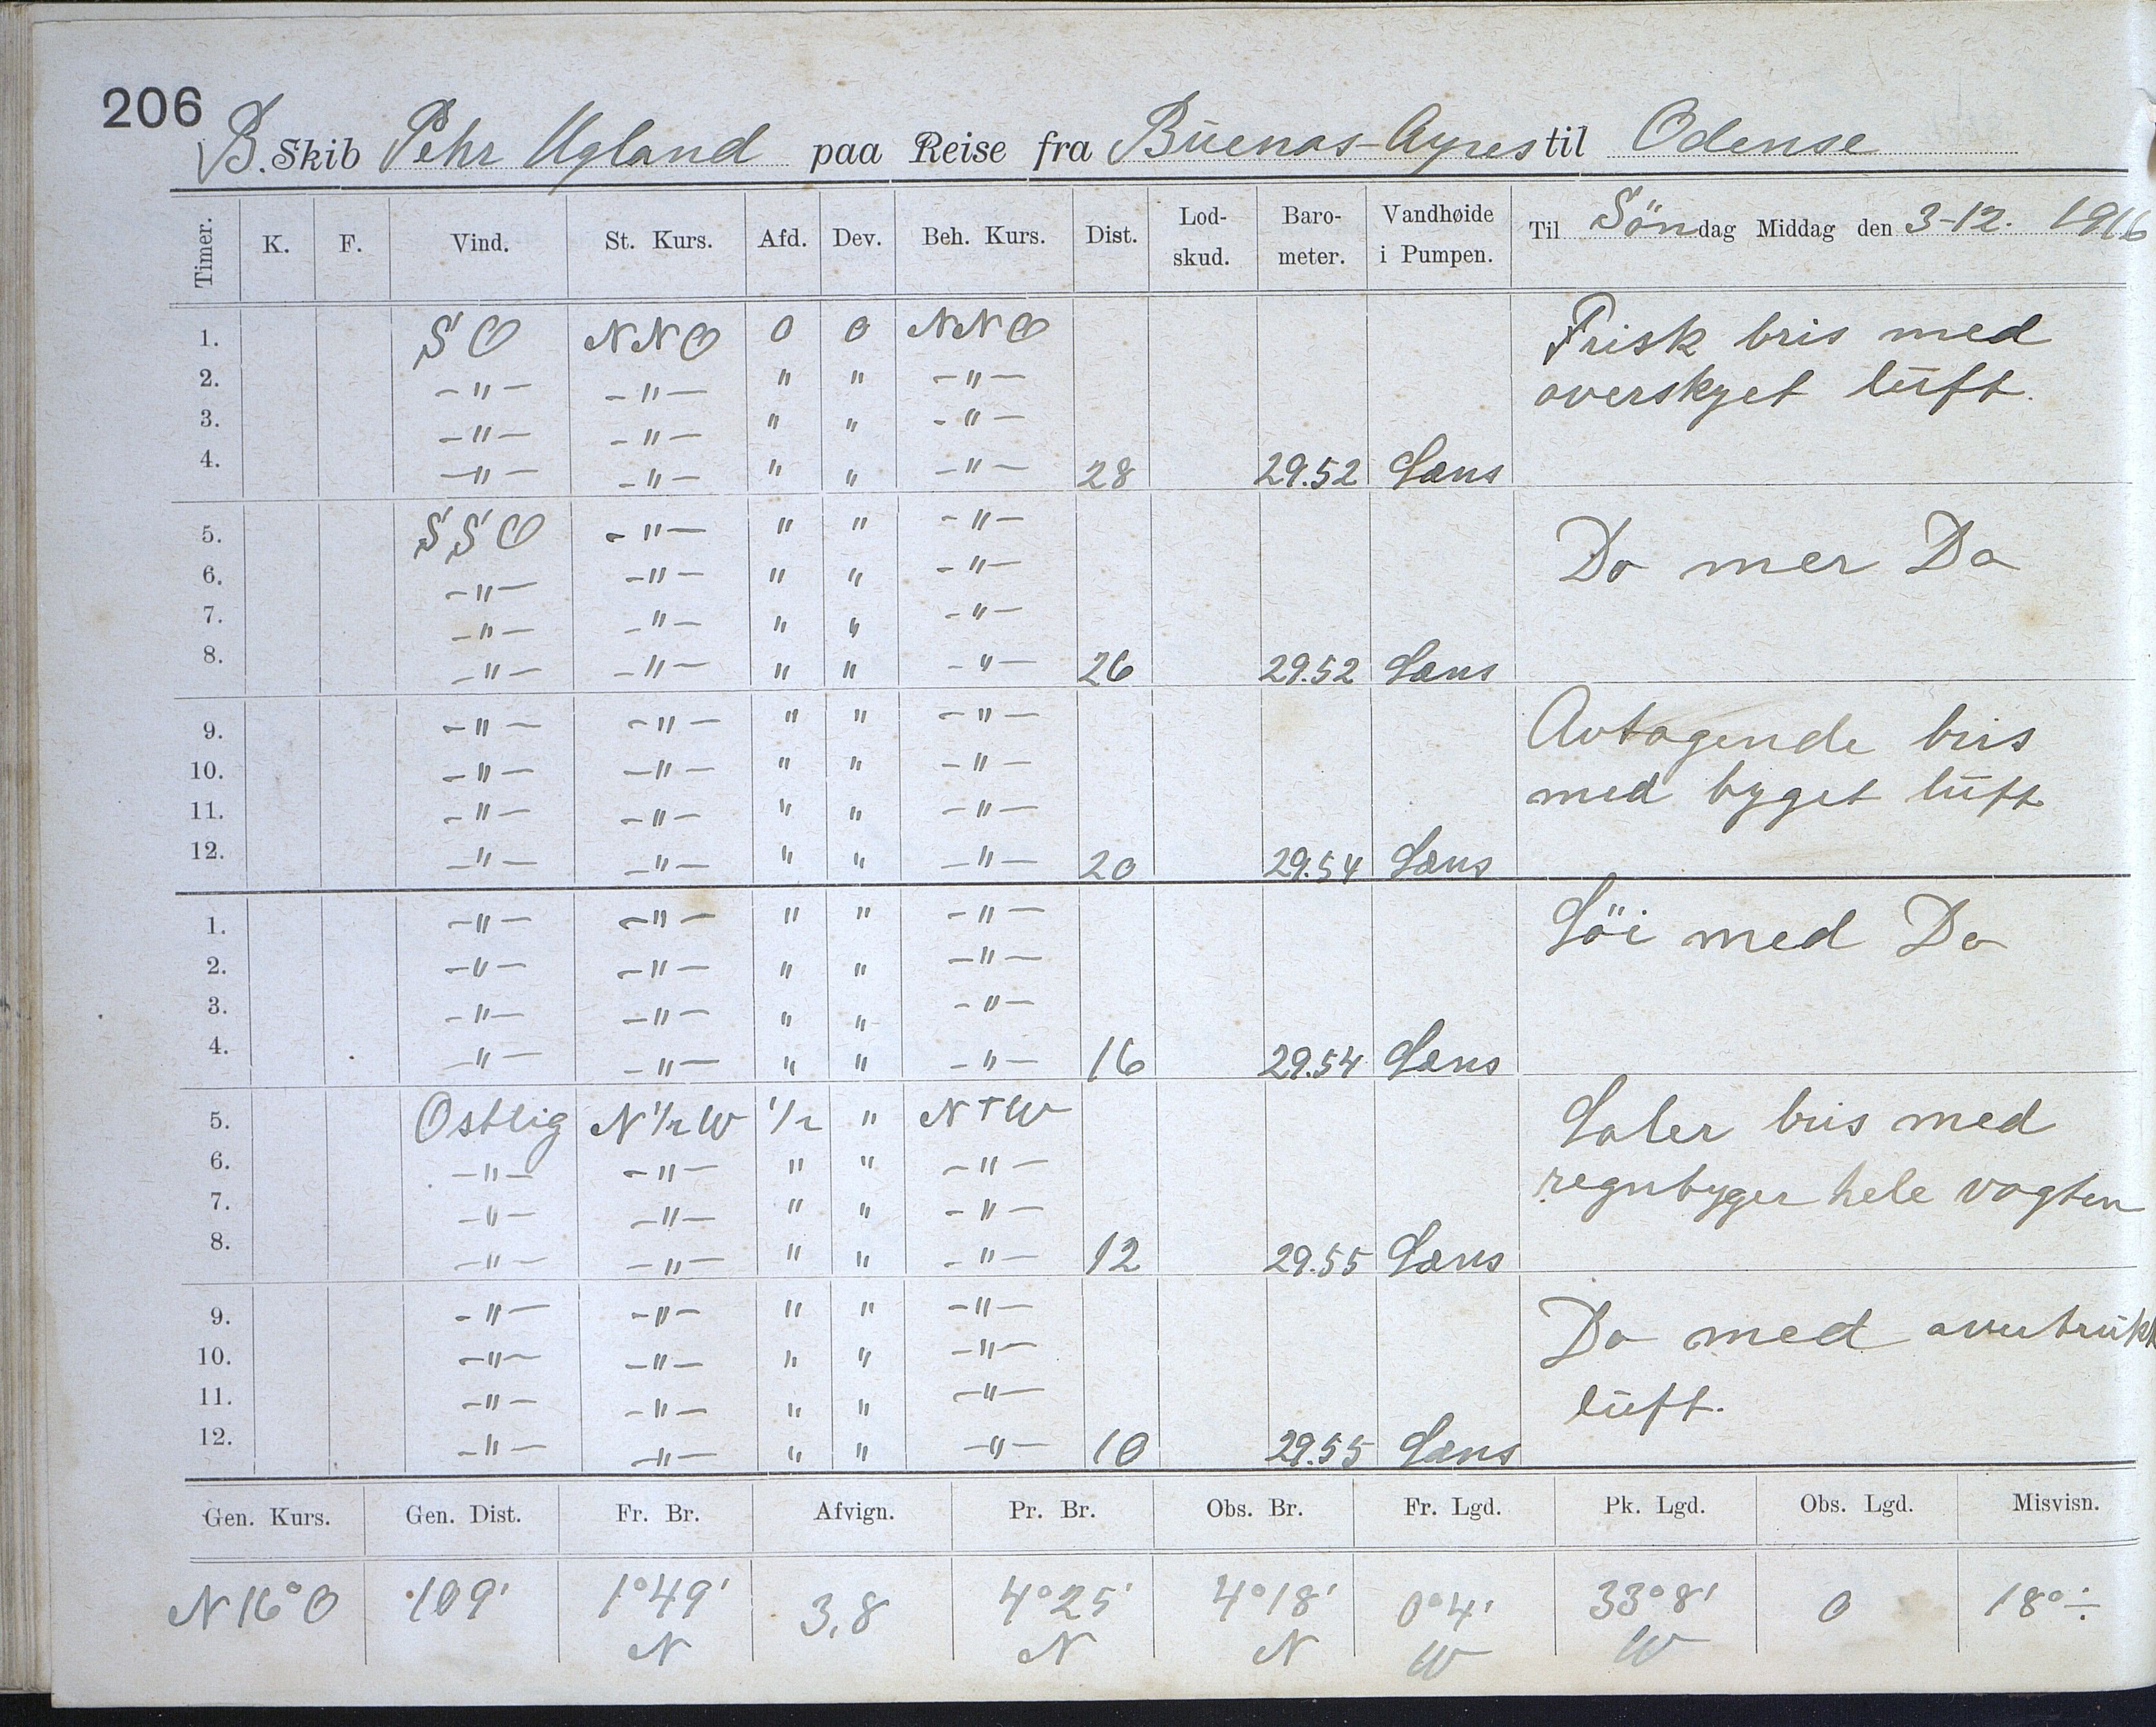 206
B. Skib Pehr Ugland paa Reise fra Buenas-Ayres til Odense
Timer. K. F. Vind. St. Kurs. Afd. Dev. Beh. Kurs. Dist. Lod-skud. Baro-meter. Vandhøide i Pumpen. Til Söndag Middag den 3-12. 1916
1. SO NNO 0 0 NNO Frisk bris med
2. -"- -"- " " -"- overskyet lüft.
3. -"- -"- " " -"-
4. -"- -"- " " -"- 28 29.52 Læns
5. SSO -"- " " -"- Do mer Do
6. -"- -"- " " -"-
7. -"- -"- " " -"-
8. -"- -"- " " -"- 26 29.52 Læns
9. -"- -"- " " -"- Avtagende bris
10. -"- -"- " " -"- med byget lüft
11. -"- -"- " " -"-
12. -"- -"- " " -"- 20 29.54 Læns
1. -"- -"- " " -"- Löi med Do
2. -"- -"- " " -"-
3. -"- -"- " " -"-
4. -"- -"- " " -"- 16 29.54 Læns
5. Ostlig N 1/2 W 1/2 " N t W Laber bris med
6. -"- -"- " " -"- regnbyger hele vagten
7. -"- -"- " " -"-
8. -"- -"- " " -"- 12 29.55 Læns
9. -"- -"- " " -"- Do med overtrükk
10. -"- -"- " " -"- lüft.
11. -"- -"- " " -"-
12. -"- -"- " " -"- 10 29.55 Læns
Gen. Kurs. Gen. Dist. Fr. Br. Afvign. Pr. Br. Obs. Br. Fr. Lgd. Pk. Lgd. Obs. Lgd. Misvisn.
N 16° O 109' 1°49' 3,8 4°25' 4°18' 0°4' 33°8' 0 18° ÷
N N N W W